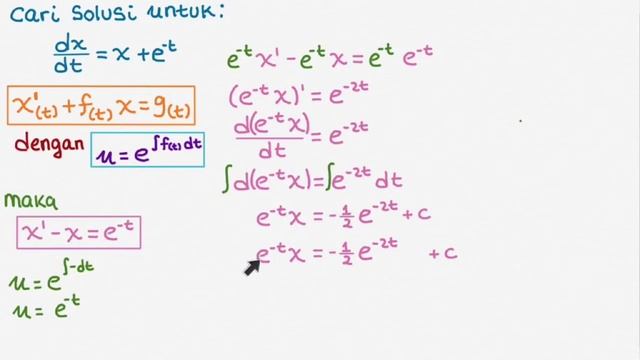 Cari Solusi untuk:
dx/dt = x + e^-t
x'(t) + f(t) x = g(t)
dengan u = e^∫f(t)dt
maka
x' - x = e^-t
u = e^∫-dt
u = e^-t
e^-t x' - e^-t x = e^-t e^-t
(e^-t x)' = e^-2t
d(e^-t x)/dt = e^-2t
∫d(e^-t x) = ∫e^-2t dt
e^-t x = -1/2 e^-2t + c
e^-t x = -1/2 e^-2t + c